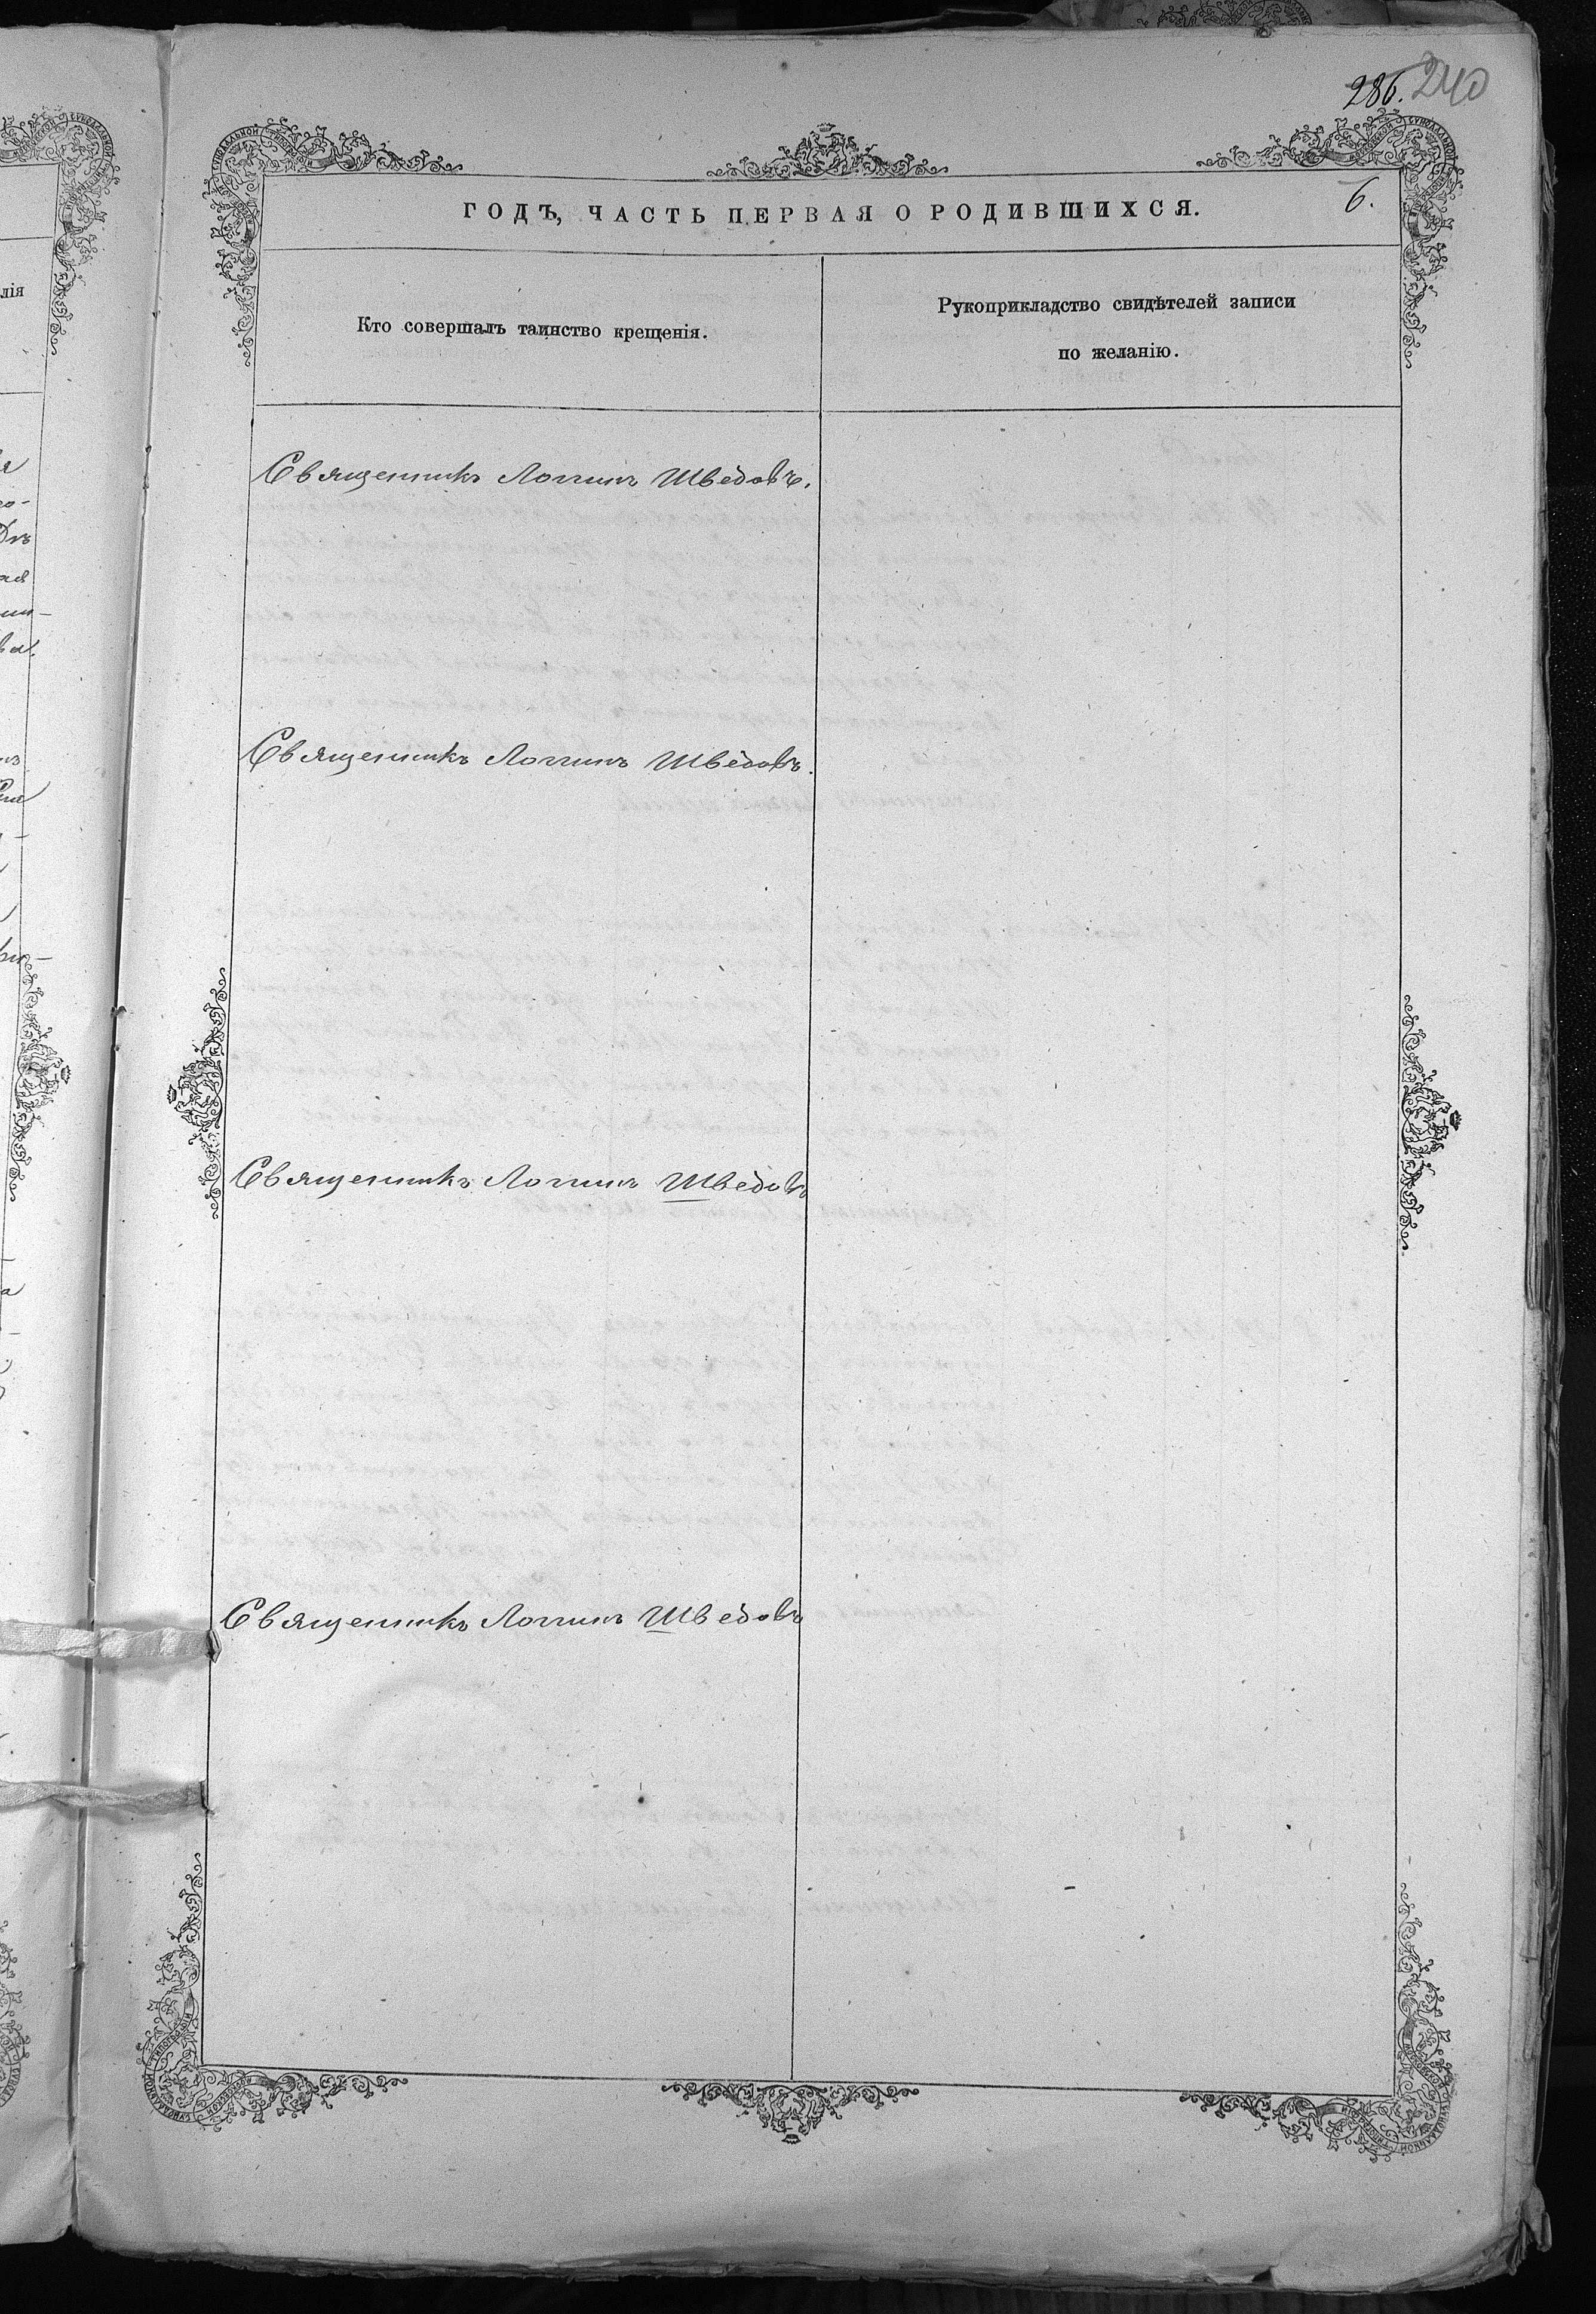 286. 240
ГОДЪ, ЧАСТЬ ПЕРВАЯ О РОДИВШИХСЯ.
6.
Кто совершалъ таинство крещенія.
Рукоприкладство свидѣтелей записи
по желанію.
Священникъ Логгинъ Шведовъ.
Священникъ Логгинъ Шведовъ.
Священникъ Логгинъ Шведовъ
Священникъ Логгинъ Шведовъ